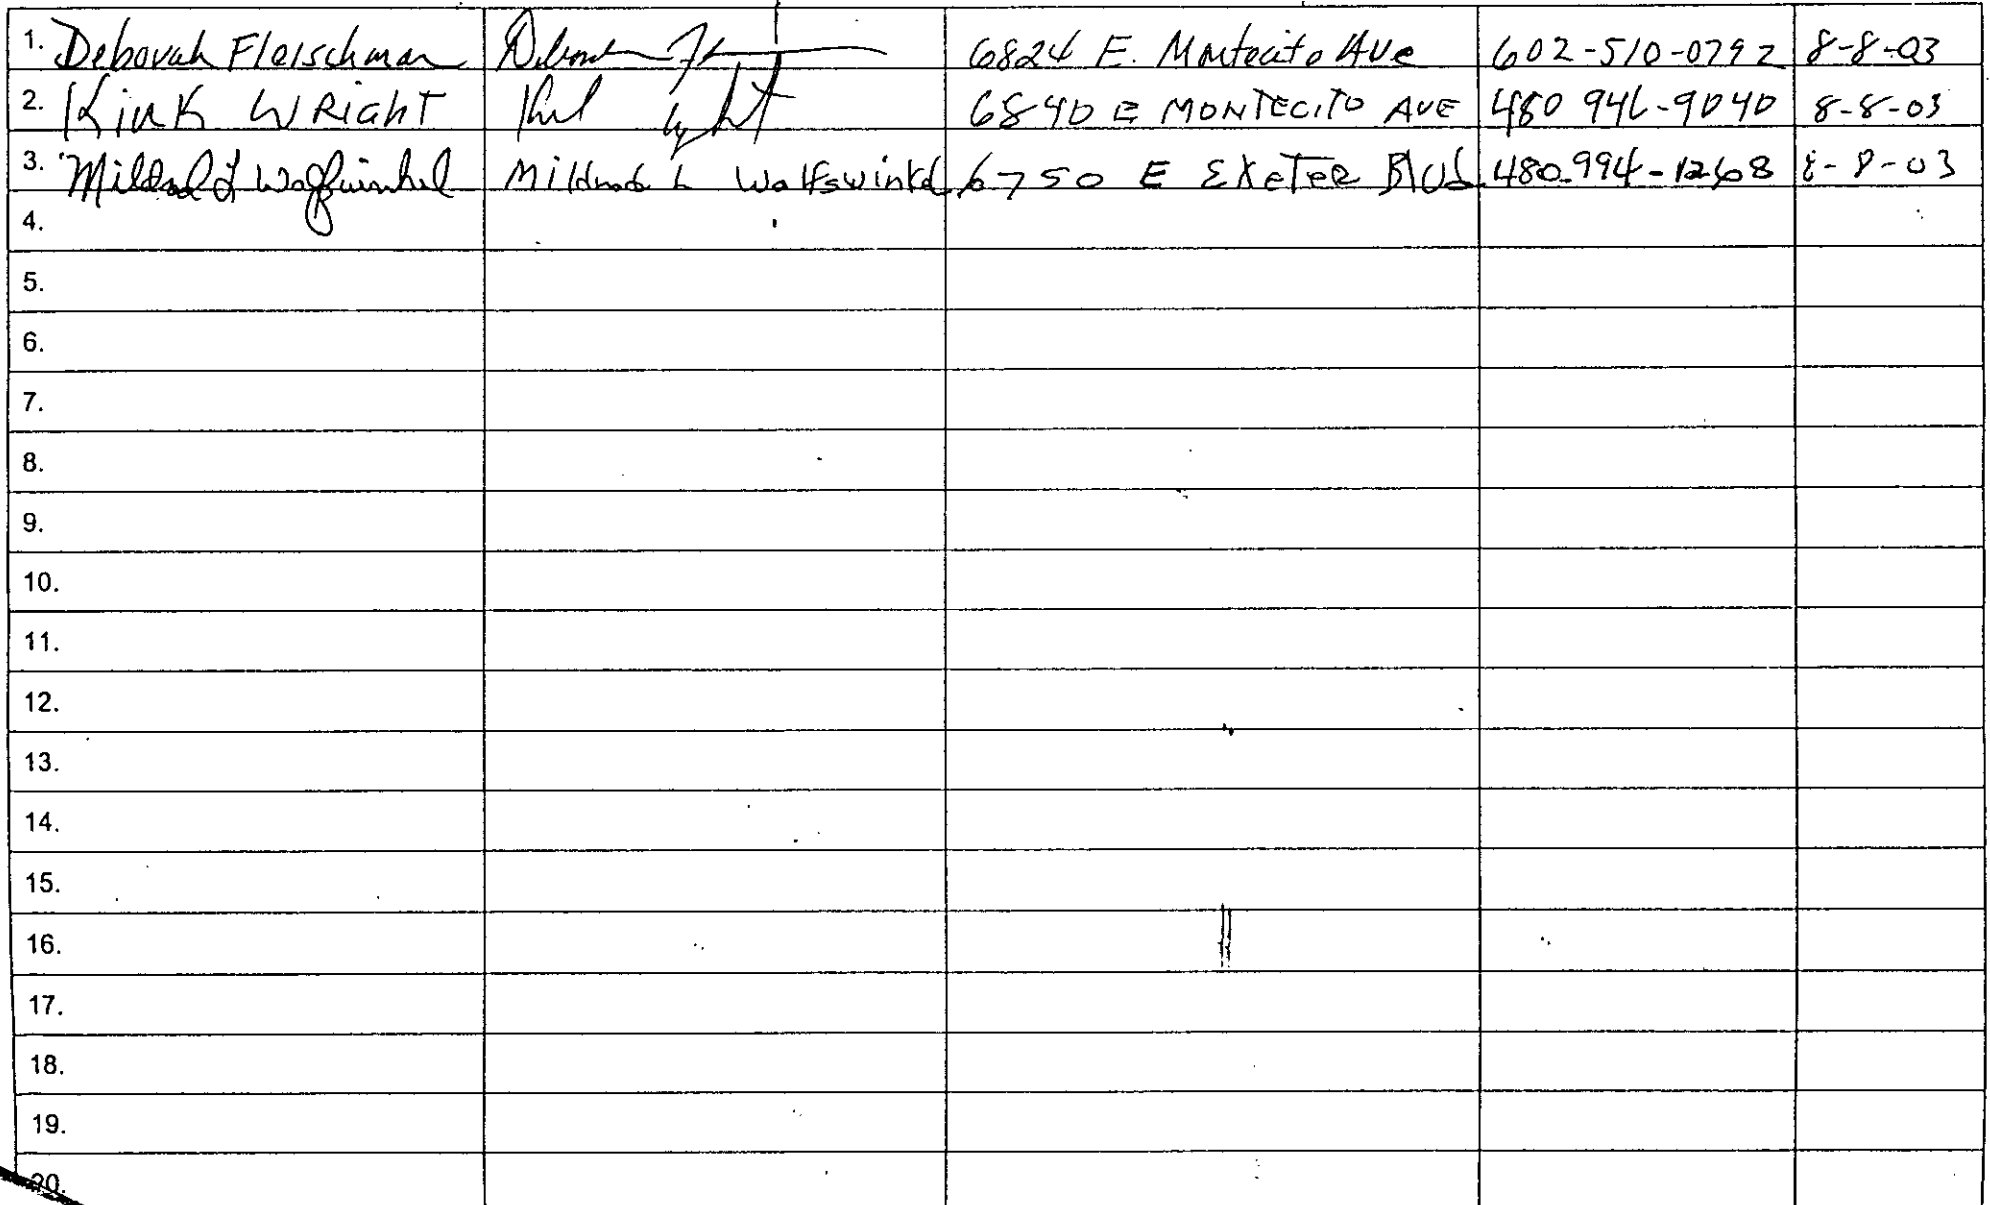 1. Deborah Fleischman 6824 E. Montecito Ave 602-510-0792 8-8-03
2. Kirk WRighT 6840 E MONTECITO AVE 480 946-9040 8-8-03
3. Mildred L Wolfswinkel Mildred L Wolfswinkel 6750 E EXeTeR Blvd 480-994-1268 8-8-03
4.
5.
6.
7.
8.
9.
10.
11.
12.
13.
14.
15.
16.
17.
18.
19.
20.